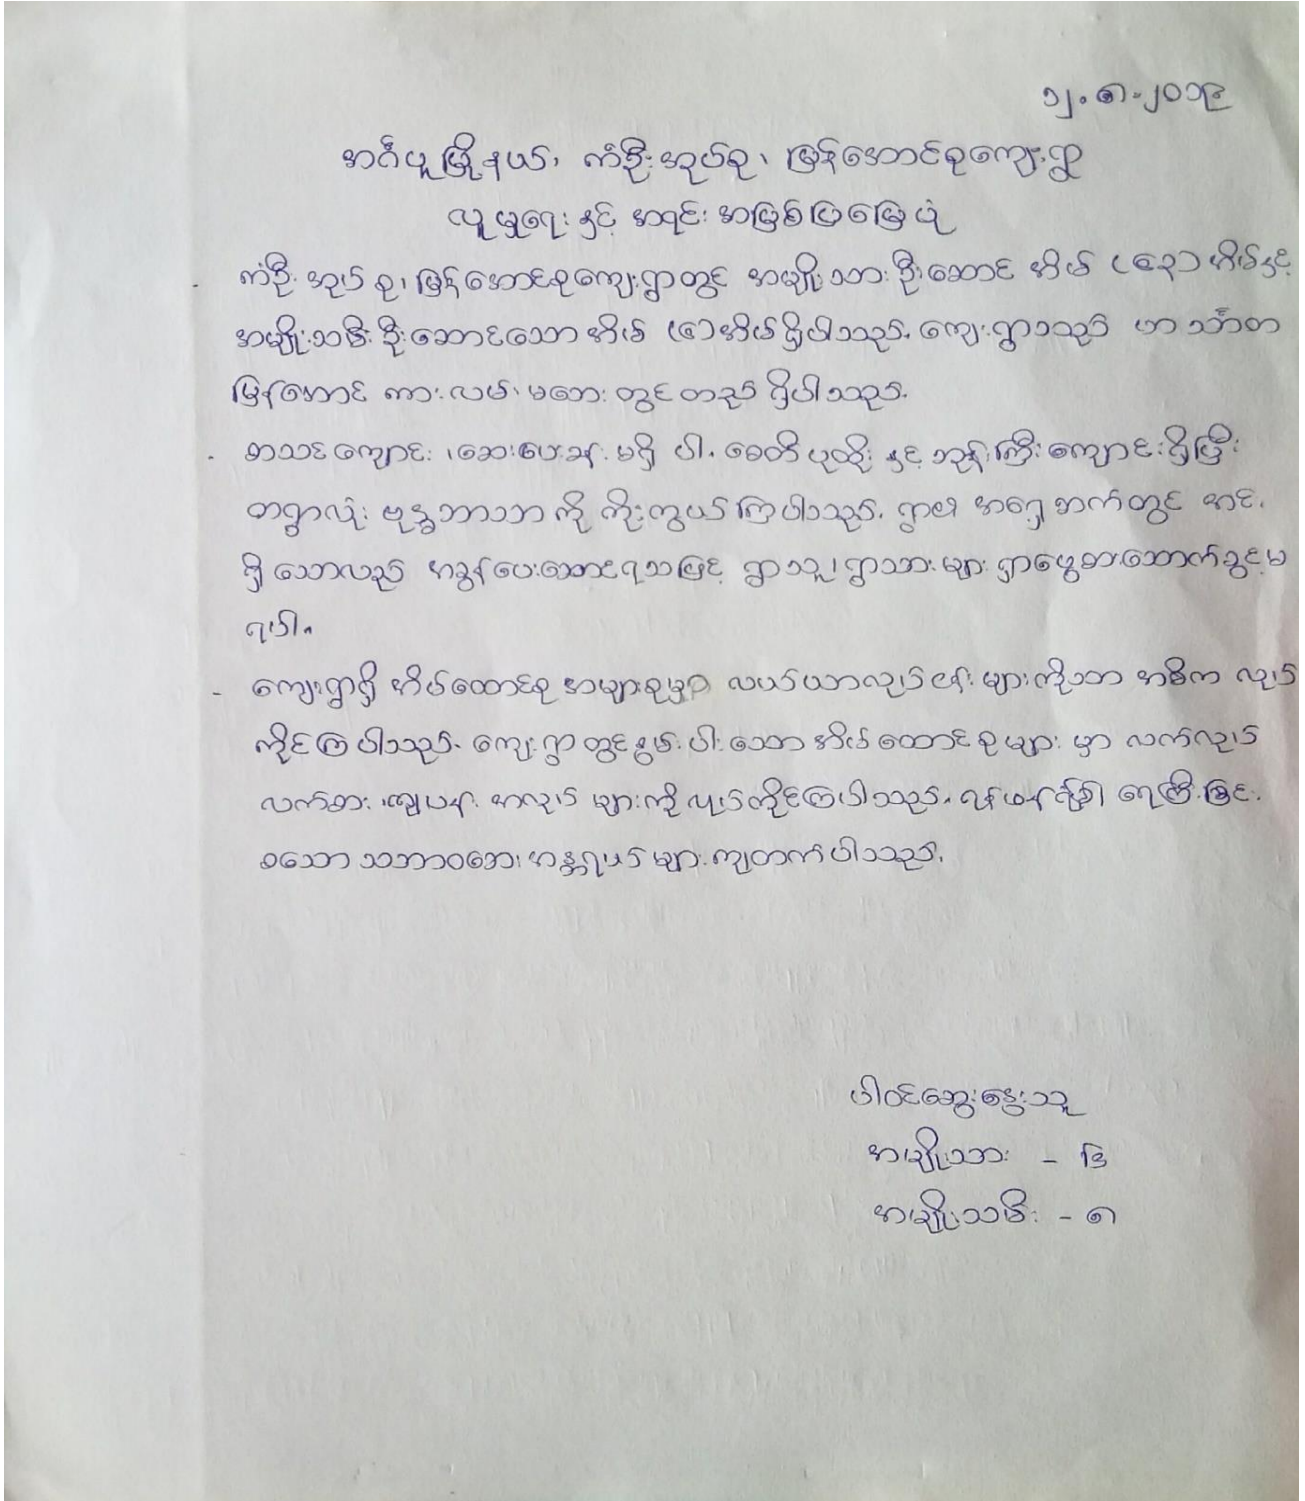 ၁၂.၈.၂၀၁၉
အင်္ဂပူမြို့နယ်၊ ကံဦးအုပ်စု၊ မြန်အောင်စုကျေးရွာ
လူမှုရေးနှင့် အရင်းအမြစ်ပြမြေပုံ
- ကံဦးအုပ်စု၊ မြန်အောင်စုကျေးရွာတွင် အမျိုးသားဦးဆောင် အိမ် (၄၃) အိမ်နှင့်
အမျိုးသမီးဦးဆောင်သော အိမ် (၄) အိမ်ရှိပါသည်. ကျေးရွာသည် ဟင်္သာတ
မြန်အောင် ကားလမ်းမဘေးတွင်တည်ရှိပါသည်.
- စာသင်ကျောင်း ၊ဆေးပေးခန်း မရှိပါ. စေတီပုထိုး နှင့် ဘုန်းကြီးကျောင်းရှိပြီး
တရွာလုံး ဗုဒ္ဓဘာသာကို ကိုးကွယ်ကြပါသည်. ရွာ၏ အရှေ့ဘက်တွင် အင်း
ရှိသော်လည်း အခွန်ပေးဆောင်ရသဖြင့် ရွာသူ၊ ရွာသားများ ရှာဖွေစားသောက်ခွင့်မ
ရပါ.
- ကျေးရွာရှိ အိမ်ထောင်စု အများစုမှာ လယ်ယာလုပ်ငန်းများကိုသာ အဓိက လုပ်
ကိုင်ကြပါသည်. ကျေးရွာတွင်နွမ်းပါးသော အိမ်ထောင်စုများ မှာ လက်လုပ်
လက်စား ၊ကျပန်း အလုပ်များကို လုပ်ကိုင်ကြပါသည်. ရေကြီးခြင်း
စသော သဘာဝဘေးအန္တရာယ်များ ကျတတ်ပါသည်.
ပါဝင်ဆွေးနွေးသူ
အမျိုးသား - ၆
အမျိုးသမီး - ၈